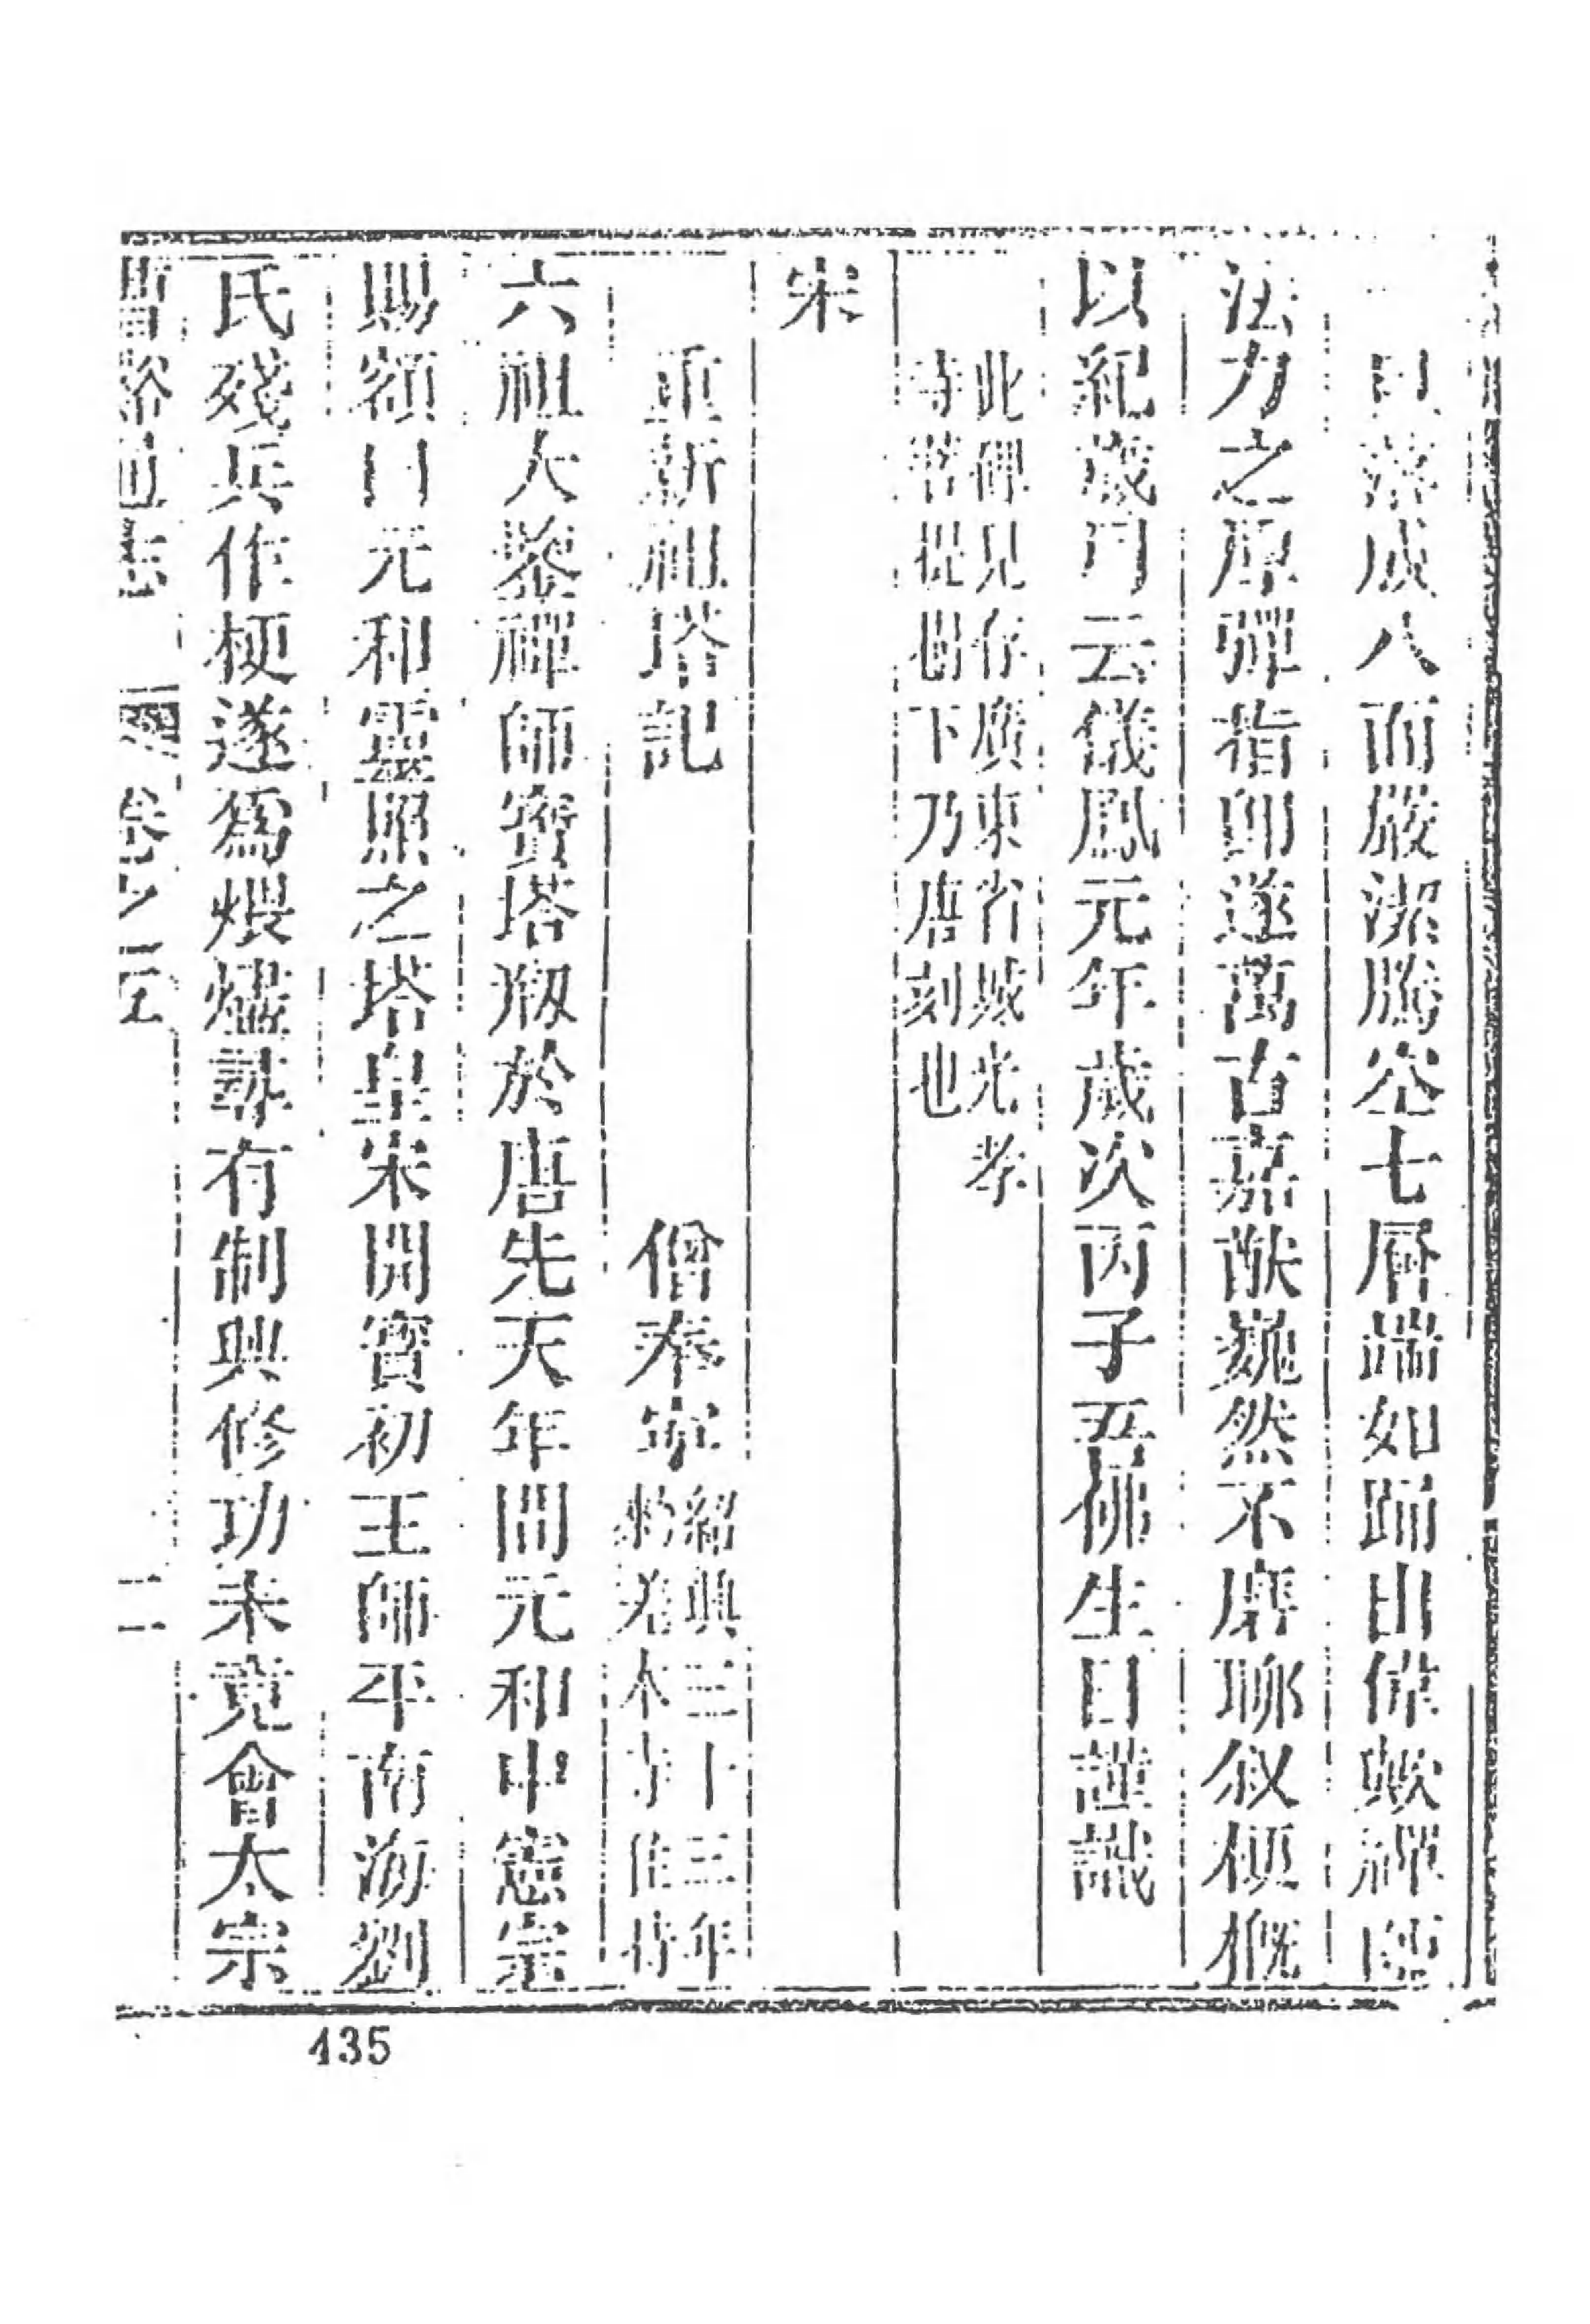 落成八面嚴潔騰空七層端如踊出偉歟禪師
法力之厚彈指即遂萬古嘉猷巍然不磨聊敘梗概
以紀歲月云儀鳳元年歲次丙子吾佛生日謹識
此碑見存廣東省城光孝
寺菩提樹下乃唐刻也
宋
重新祖塔記　僧奉寧
紹興三十三年
本寺住持
六祖大鑒禪師寶塔刱於唐先天年間元和中憲宗
賜額曰元和靈照之塔皇宋開寶初王師平南海劉
氏殘兵作梗遂爲煨燼尋有制興修功未竟會太宗
曹谿通志　卷之三　二
135